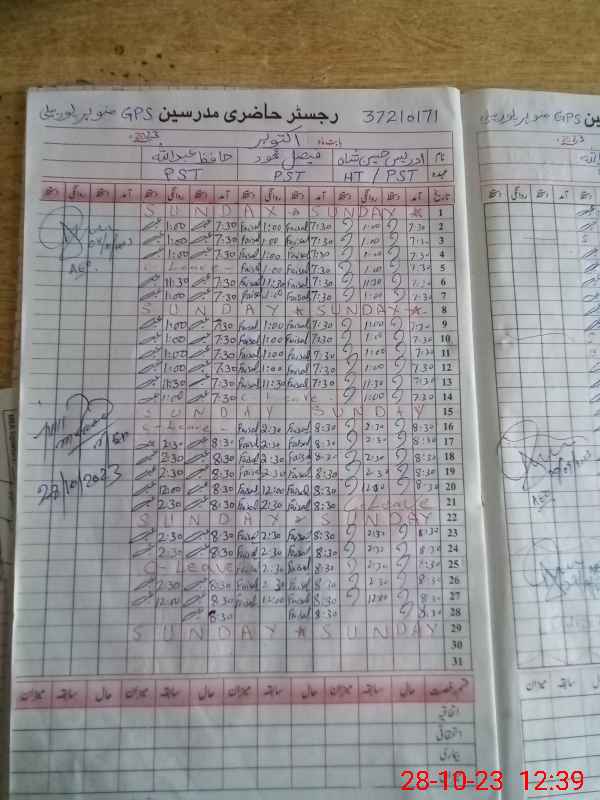 رجسٹر حاضری مدرسین GPS 37210171
بابت ماہ اکتوبر 2023
نام ادریس حسین شاہ فیصل محمود حافظ عبداللہ
عہدہ HT / PST PST PST
تاریخ آمد دستخط روانگی دستخط آمد دستخط روانگی دستخط آمد دستخط روانگی دستخط آمد دستخط روانگی دستخط
SUNDAY * SUNDAY * 1
1:00 7:30 Faisal 1:00 Faisal 7:30 1:00 7:30 2
1:00 7:30 Faisal 1:00 Faisal 7:30 1:00 7:30 3
1:00 7:30 Faisal 1:00 Faisal 7:30 1:00 7:30 4
C-Leave - Faisal 1:00 Faisal 7:30 1:00 7:30 5
11:30 7:30 Faisal 11:30 Faisal 7:30 11:30 7:30 6
1:00 7:30 Faisal 1:00 Faisal 7:30 1:00 7:30 7
SUNDAY * SUNDAY * 8
1:00 7:30 Faisal 1:00 Faisal 7:30 1:00 7:30 9
1:00 7:30 Faisal 1:00 Faisal 7:30 1:00 7:30 10
1:00 7:30 Faisal 1:00 Faisal 7:30 1:00 7:30 11
1:00 7:30 Faisal 1:00 Faisal 7:30 1:00 7:30 12
11:30 7:30 Faisal 11:30 Faisal 7:30 11:30 7:30 13
1:00 7:30 C Leave - 1:00 7:30 14
SUNDAY SUNDAY 15
C-Leave - Faisal 2:30 Faisal 8:30 2:30 8:30 16
2:30 8:30 Faisal 2:30 Faisal 8:30 2:30 8:30 17
2:30 8:30 Faisal 2:30 Faisal 8:30 2:30 8:30 18
2:30 8:30 Faisal 2:30 Faisal 8:30 2:30 8:30 19
12:00 8:30 Faisal 12:00 Faisal 8:30 12:00 8:30 20
2:30 8:30 Faisal 2:30 Faisal 8:30 C-Leave 21
SUNDAY * SUNDAY 22
2:30 8:30 Faisal 2:30 Faisal 8:30 2:30 8:30 23
2:30 8:30 Faisal 2:30 Faisal 8:30 2:30 8:30 24
C-Leave Faisal 2:30 Faisal 8:30 2:30 8:30 25
2:30 8:30 Faisal 2:30 Faisal 8:30 2:30 8:30 26
12:00 8:30 Faisal 12:00 Faisal 8:30 12:00 8:30 27
8:30 Faisal 8:30 8:30 28
SUNDAY * SUNDAY 29
30
31
AEO
28/10/2023
قسم رخصت حال سابقہ میزان حال سابقہ میزان حال سابقہ میزان حال سابقہ میزان
اتفاقیہ
بیماری
28-10-23 12:39